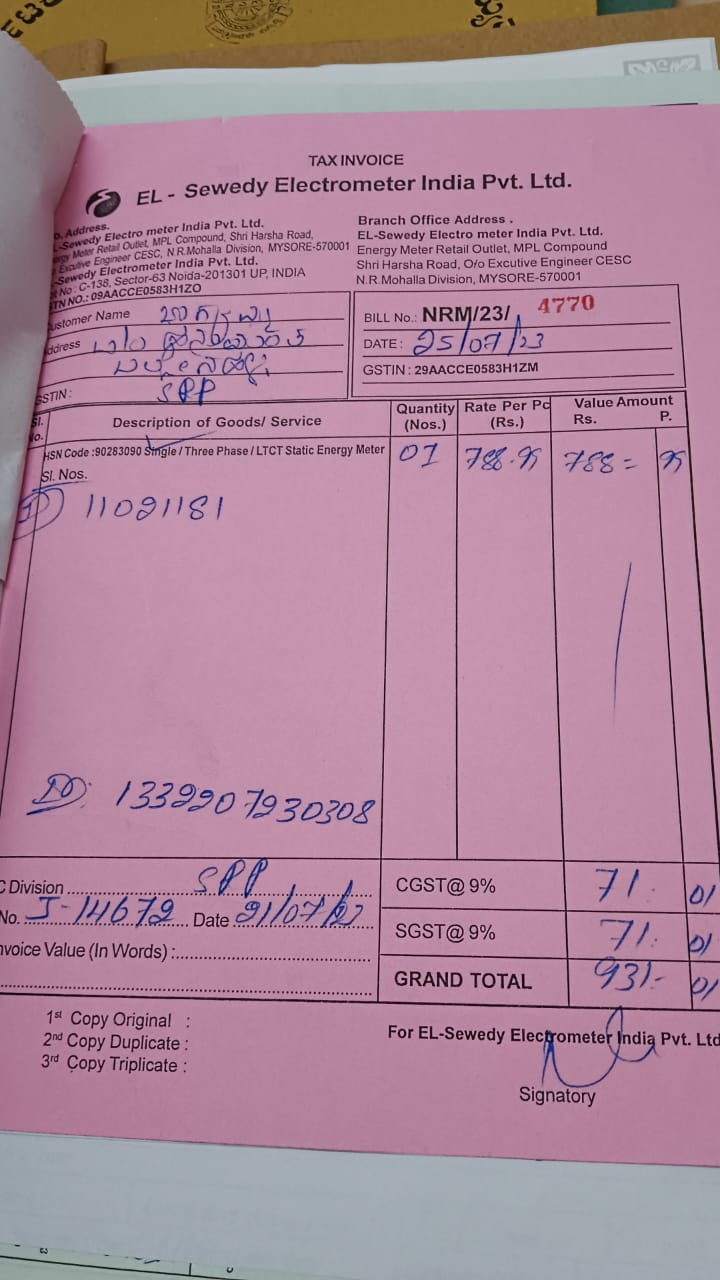 TAX INVOICE
EL - Sewedy Electrometer India Pvt. Ltd.
Address.
Sewedy Electro meter India Pvt. Ltd.
Meter Retail Outlet, MPL Compound, Shri Harsha Road,
Excutive Engineer CESC, N.R.Mohalla Division, MYSORE-570001
Sewedy Electrometer India Pvt. Ltd.
No : C-138, Sector-63 Noida-201301 UP, INDIA
TN NO.: 09AACCE0583H1ZO
Branch Office Address .
EL-Sewedy Electro meter India Pvt. Ltd.
Energy Meter Retail Outlet, MPL Compound
Shri Harsha Road, O/o Excutive Engineer CESC
N.R.Mohalla Division, MYSORE-570001
ustomer Name
ddress
GSTIN : SPP
BILL No.: NRM/23/ 4770
DATE : 25/07/23
GSTIN : 29AACCE0583H1ZM
Sl. No. Description of Goods/ Service Quantity (Nos.) Rate Per Pc (Rs.) Value Amount Rs. P.
HSN Code :90283090 Single / Three Phase / LTCT Static Energy Meter 01 788.95 788= 95
Sl. Nos.
1) 11021181
ID: 1339207230308
C Division SPP
No. J-14672 Date 21/07/23
nvoice Value (In Words) :
CGST@ 9% 71. 01
SGST@ 9% 71. 01
GRAND TOTAL 931- 01
1st Copy Original :
2nd Copy Duplicate :
3rd Copy Triplicate :
For EL-Sewedy Electrometer India Pvt. Ltd
Signatory